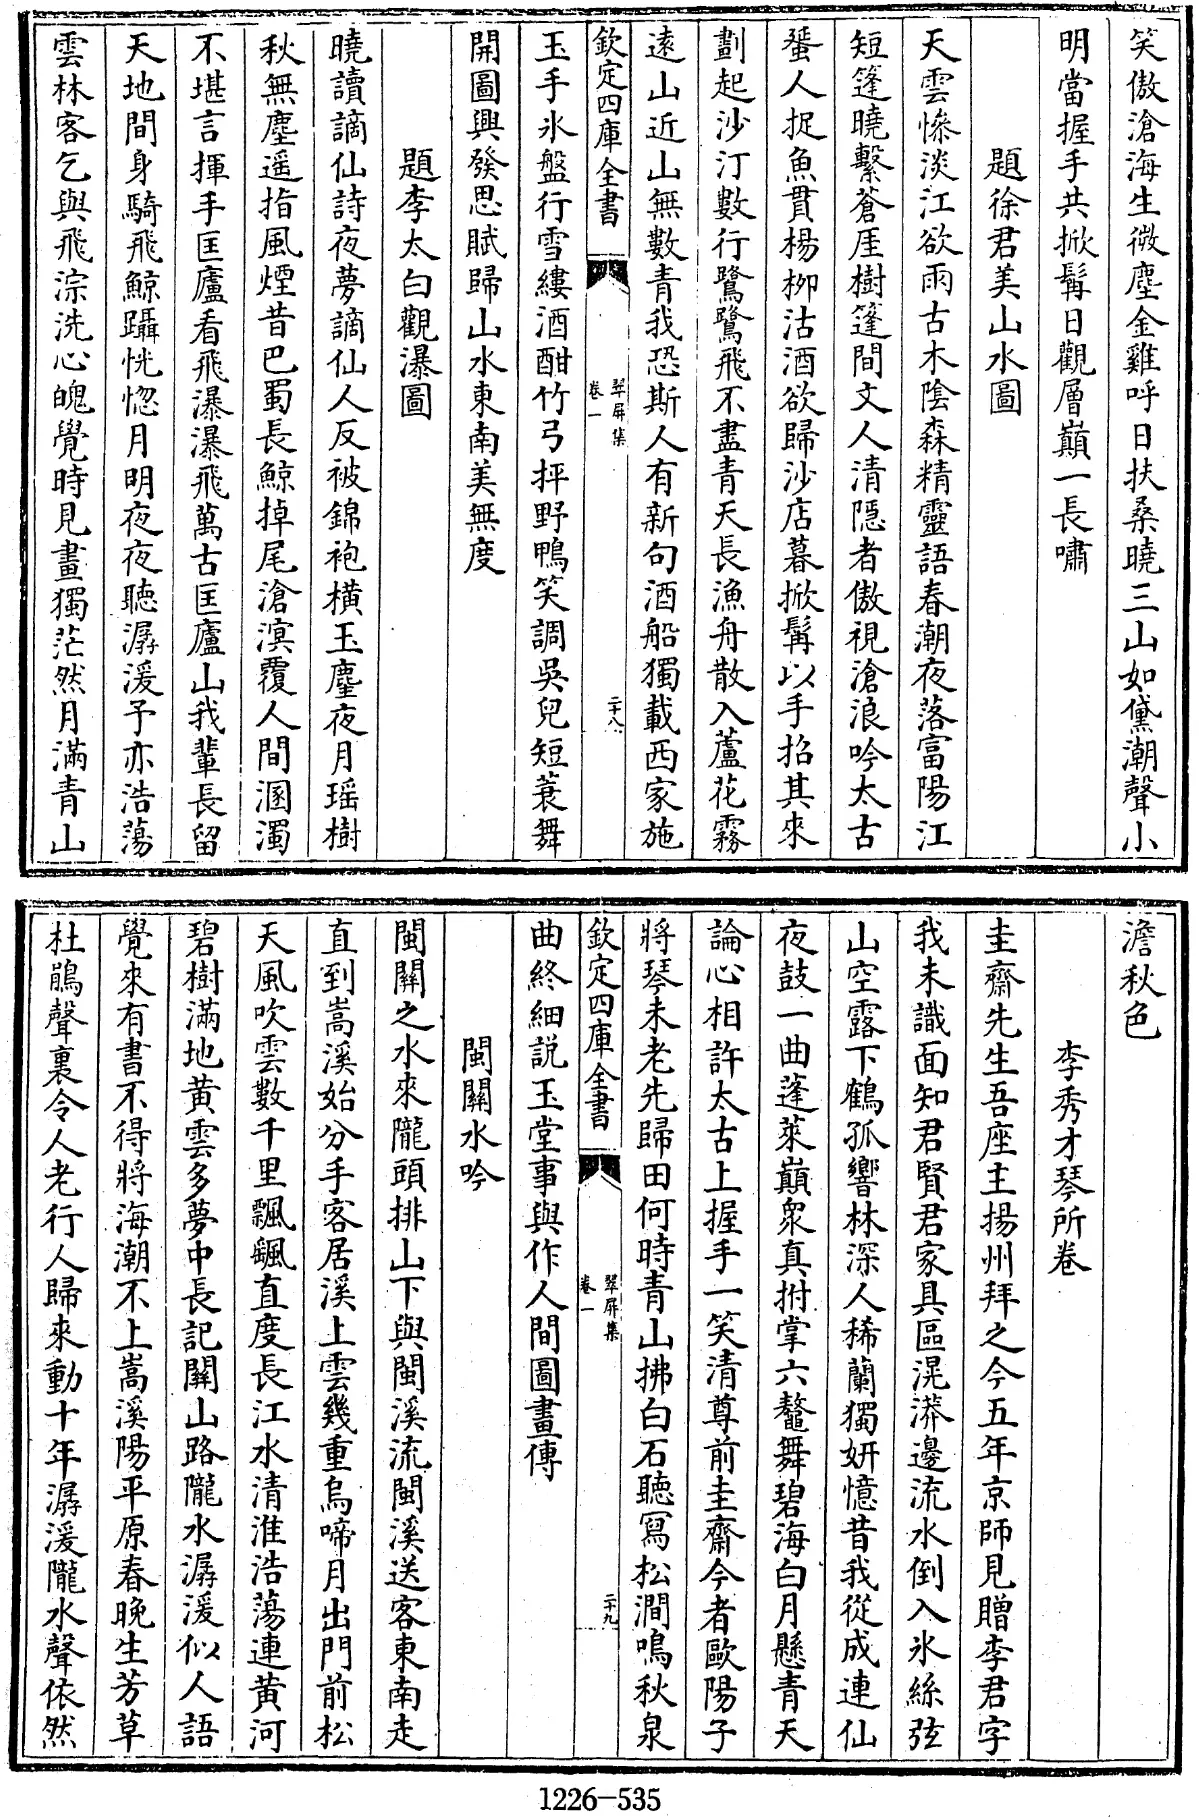 笑傲滄海生微塵金雞呼日扶桑曉三山如黛潮聲小
明當握手共掀髯日觀層巔一長嘯
題徐君美山水圖
天雲慘淡江欲雨古木陰森精靈語春潮夜落富陽江
短篷曉繫蒼厓樹篷間文人清隱者傲視滄浪吟太古
蜑人捉魚貫楊柳沽酒欲歸沙店暮掀髯以手招其來
劃起沙汀數行鷺鷺飛不盡青天長漁舟散入蘆花霧
遠山近山無數青我恐斯人有新句酒船獨載西家施
欽定四庫全書
翠屏集
卷一
二十八
玉手氷盤行雪縷酒酣竹弓抨野鴨笑調吳兒短蓑舞
開圖興發思賦歸山水東南美無度
題李太白觀瀑圖
曉讀謫仙詩夜夢謫仙人反被錦袍橫玉麈夜月瑶樹
秋無塵遥指風煙昔巴蜀長鯨掉尾滄溟覆人間溷濁
不堪言揮手匡廬看飛瀑瀑飛萬古匡廬山我輩長留
天地間身騎飛鯨躡恍惚月明夜夜聽潺湲予亦浩蕩
雲林客乞與飛淙洗心魄覺時見畫獨茫然月滿青山
澹秋色
李秀才琴所卷
圭齋先生吾座主揚州拜之今五年京師見贈李君字
我未識面知君賢君家具區滉漭邊流水倒入氷絲弦
山空露下鶴孤響林深人稀蘭獨妍憶昔我從成連仙
夜鼓一曲蓬萊巔衆真拊掌六鼇舞碧海白月懸青天
論心相許太古上握手一笑清尊前圭齋今者歐陽子
將琴未老先歸田何時青山拂白石聽冩松澗鳴秋泉
欽定四庫全書
翠屏集
卷一
二十九
曲終細説玉堂事與作人間圖畫傳
閩關水吟
閩關之水來隴頭排山下與閩溪流閩溪送客東南走
直到嵩溪始分手客居溪上雲幾重烏啼月出門前松
天風吹雲數千里飄飄直度長江水清淮浩蕩連黄河
碧樹滿地黄雲多夢中長記關山路隴水潺湲似人語
覺來有書不得將海潮不上嵩溪陽平原春晚生芳草
杜鵑聲裏令人老行人歸來動十年潺湲隴水聲依然
1226—535